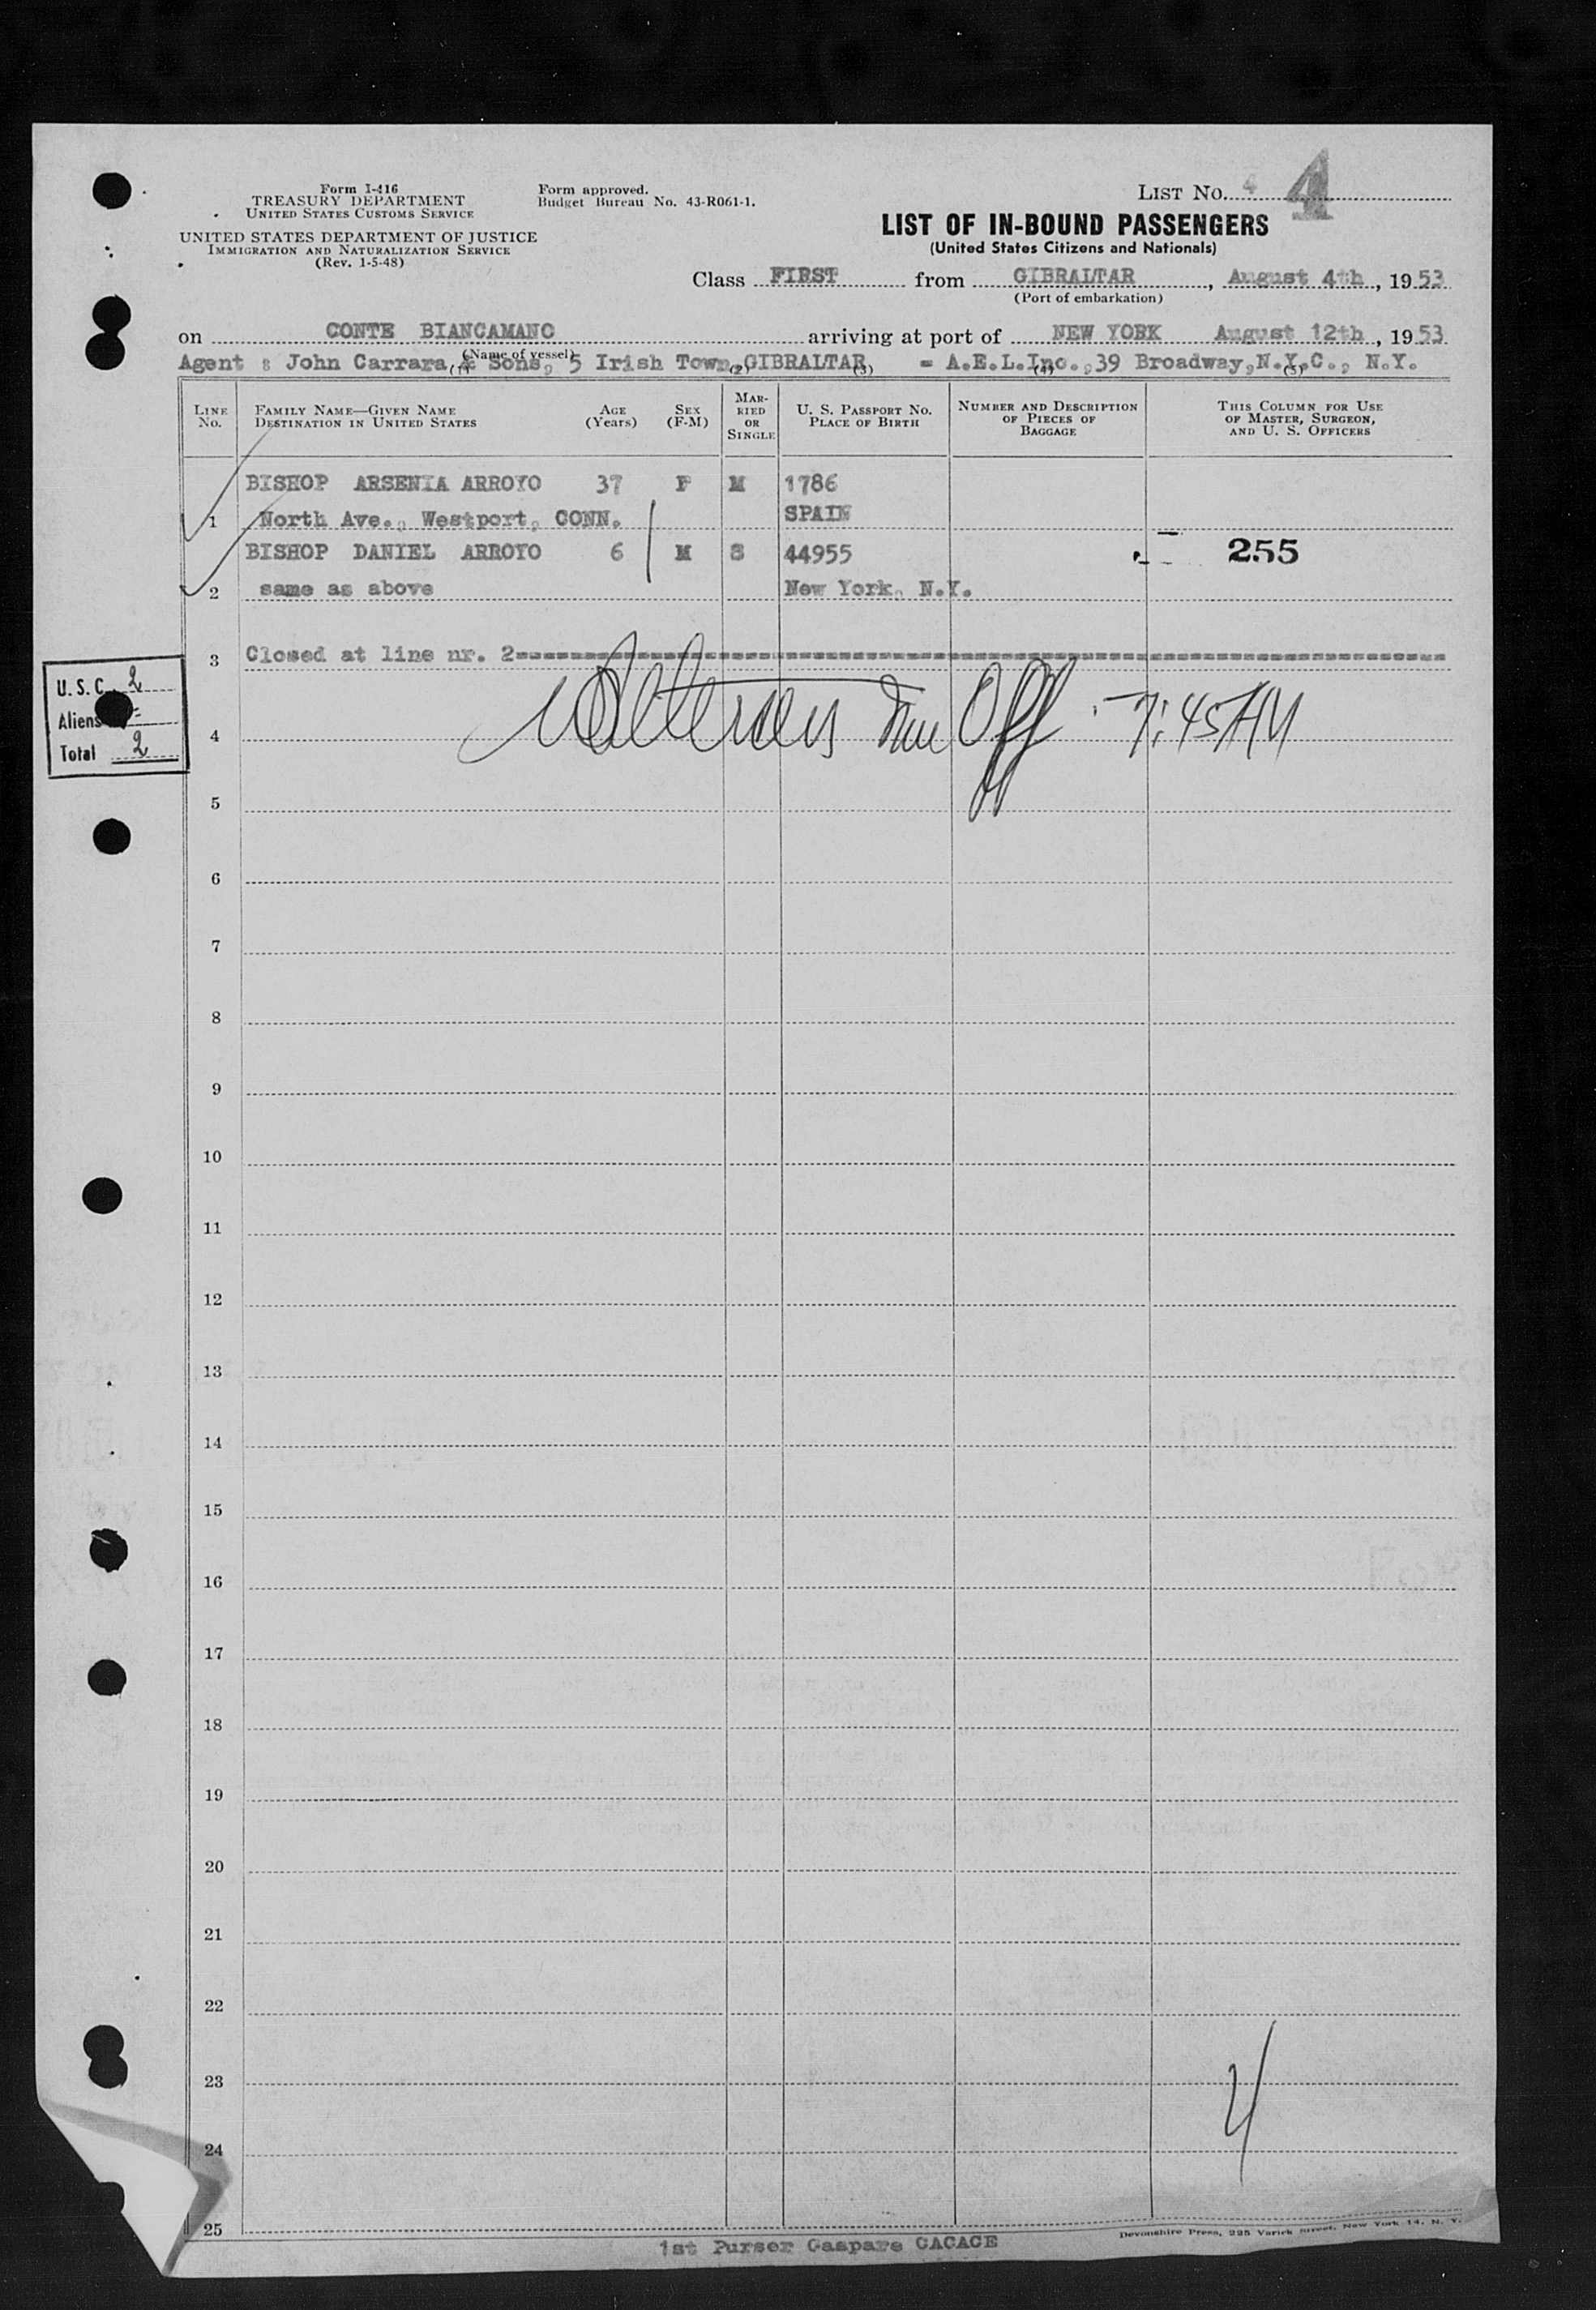 Form I-416
TREASURY DEPARTMENT
UNITED STATES CUSTOMS SERVICE
UNITED STATES DEPARTMENT OF JUSTICE
IMMIGRATION AND NATURALIZATION SERVICE
(Rev. 1-5-48)
Form approved.
Budget Bureau No. 43-R061-1.
LIST NO. 4 4
LIST OF IN-BOUND PASSENGERS
(United States Citizens and Nationals)
Class FIRST from GIBRALTAR, August 4th, 1953
(Port of embarkation)
on CONTE BIANCAMANO arriving at port of NEW YORK August 12th, 1953
(Name of vessel)
Agent : John Carrara & Sons, 5 Irish Town, GIBRALTAR = A.E.L.Inc.,39 Broadway,N.Y.C., N.Y.
(1) (2) (3) (4) (5)
LINE NO.
FAMILY NAME—GIVEN NAME
DESTINATION IN UNITED STATES
AGE (Years)
SEX (F-M)
MARRIED OR SINGLE
U. S. PASSPORT NO.
PLACE OF BIRTH
NUMBER AND DESCRIPTION OF PIECES OF BAGGAGE
THIS COLUMN FOR USE OF MASTER, SURGEON, AND U. S. OFFICERS
BISHOP ARSENIA ARROYO 37 F M 1786
1 North Ave., Westport, CONN. SPAIN
BISHOP DANIEL ARROYO 6 M S 44955 255
2 same as above New York, N.Y.
3 Closed at line nr. 2
U. S. C. 2
Aliens
Total 2
4 Off 7:45 AM
5
6
7
8
9
10
11
12
13
14
15
16
17
18
19
20
21
22
23
4
24
25
Devonshire Press, 225 Varick Street, New York 14, N. Y.
1st Purser Gaspare CACACE